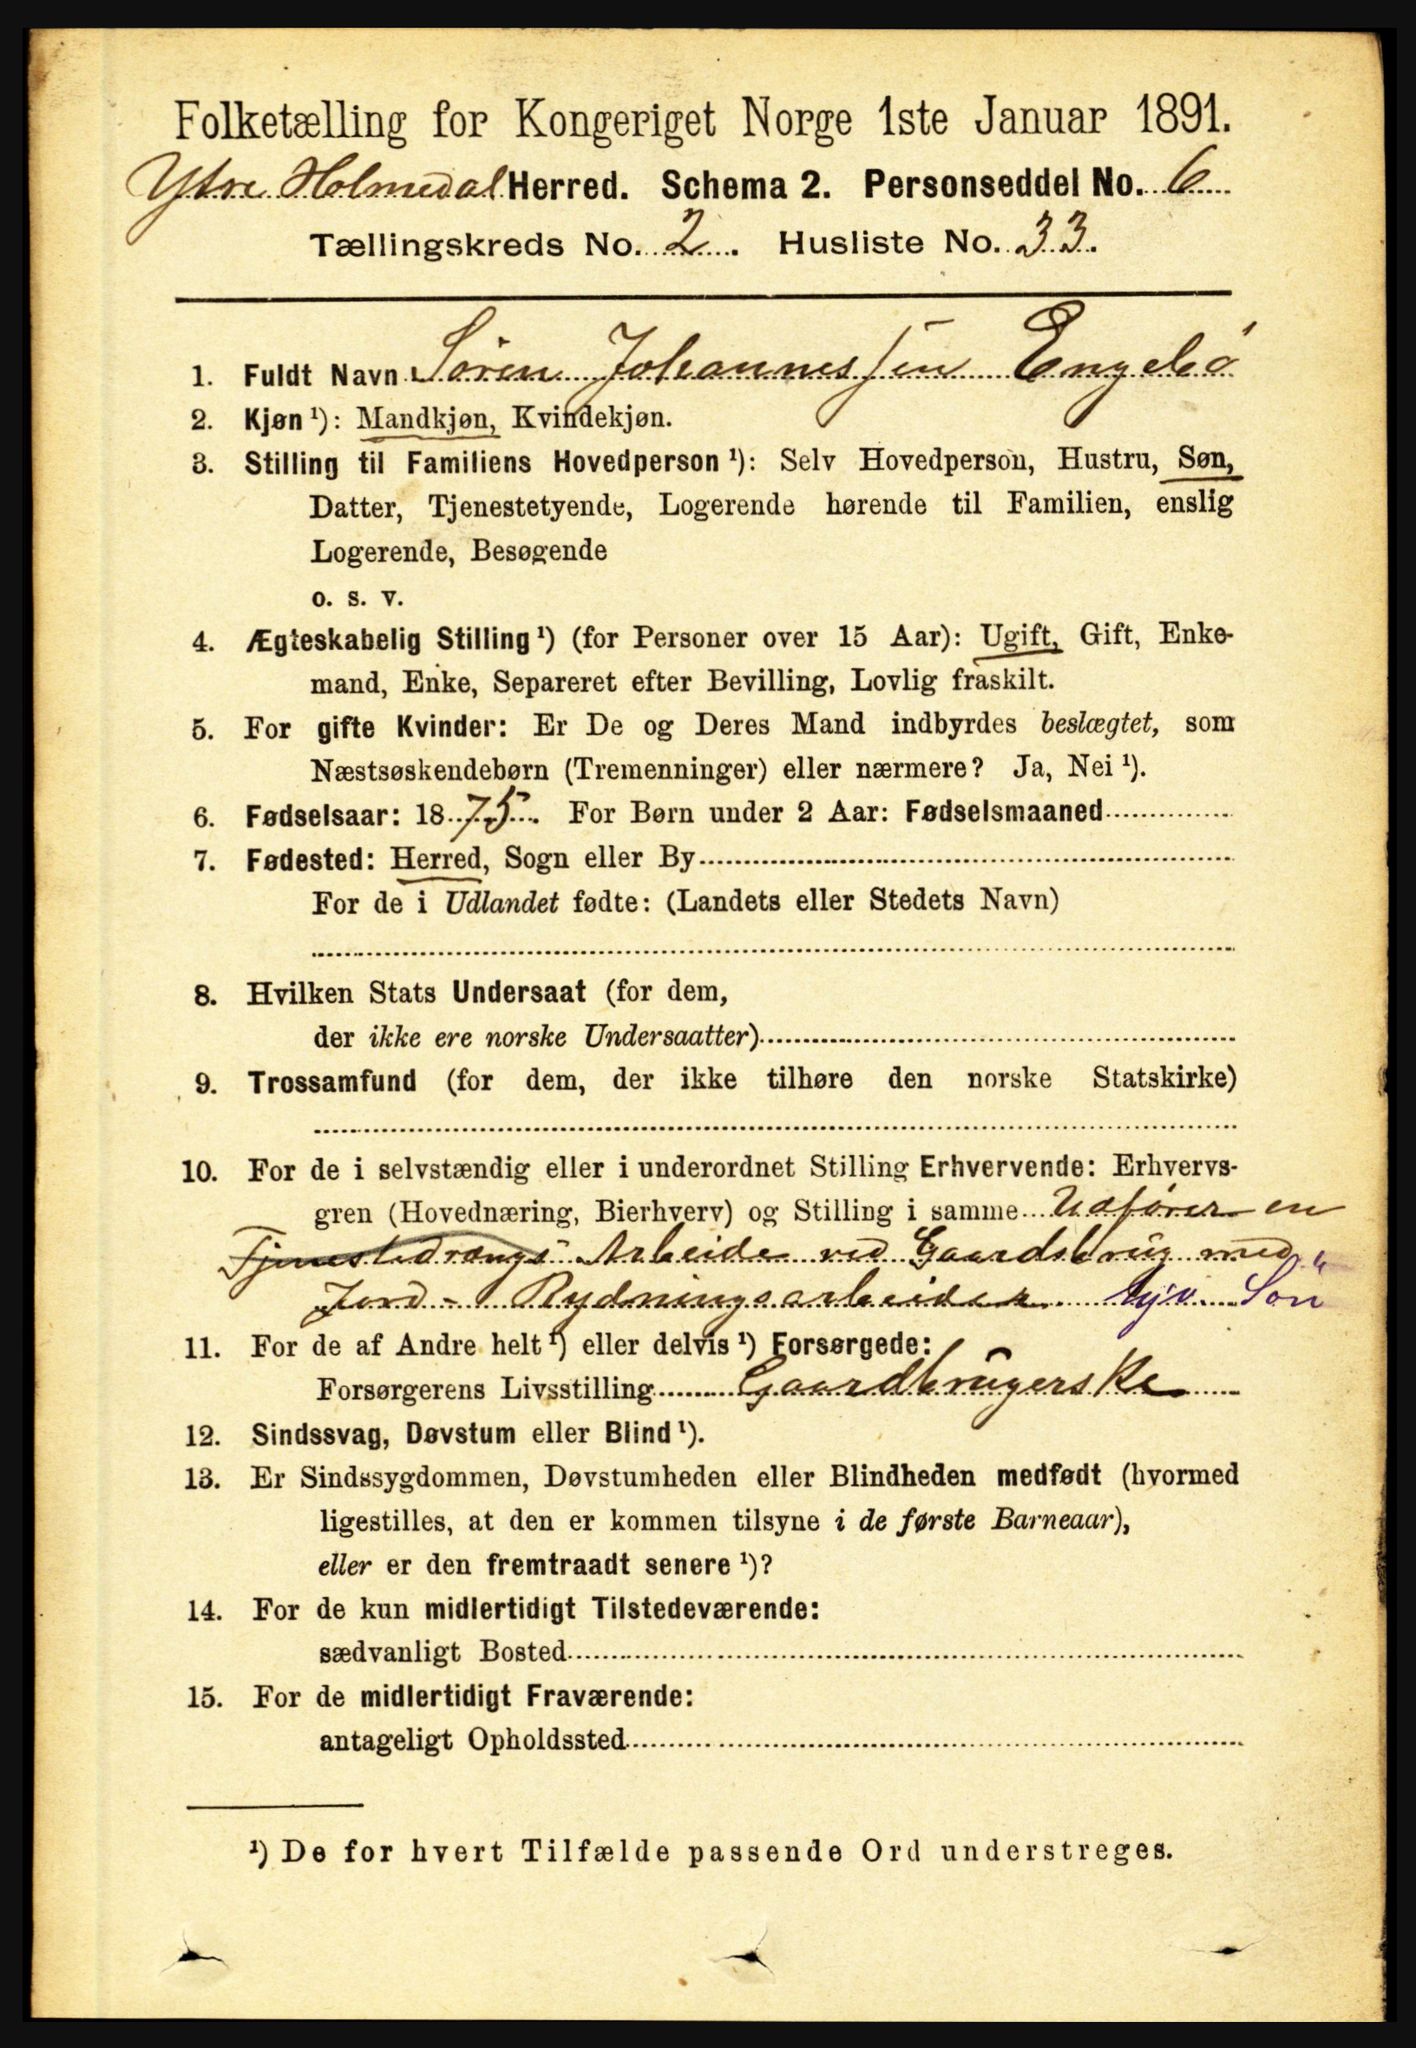 Folketælling for Kongeriget Norge 1ste Januar 1891.
Ytre Holmedal Herred. Schema 2. Personseddel No. 6
Tællingskreds No. 2. Husliste No. 33.
1. Fuldt Navn Sören Johannessen Engebö
2. Kjøn ¹): Mandkjøn, Kvindekjøn.
3. Stilling til Familiens Hovedperson ¹): Selv Hovedperson, Hustru, Søn,
Datter, Tjenestetyende, Logerende hørende til Familien, enslig
Logerende, Besøgende
o. s. v.
4. Ægteskabelig Stilling ¹) (for Personer over 15 Aar): Ugift, Gift, Enke-
mand, Enke, Separeret efter Bevilling, Lovlig fraskilt.
5. For gifte Kvinder: Er De og Deres Mand indbyrdes beslægtet, som
Næstsøskendebørn (Tremenninger) eller nærmere? Ja, Nei ¹).
6. Fødselsaar: 1875. For Børn under 2 Aar: Fødselsmaaned
7. Fødested: Herred, Sogn eller By
For de i Udlandet fødte: (Landets eller Stedets Navn)
8. Hvilken Stats Undersaat (for dem,
der ikke ere norske Undersaatter)
9. Trossamfund (for dem, der ikke tilhøre den norske Statskirke)
10. For de i selvstændig eller i underordnet Stilling Erhvervende: Erhvervs-
gren (Hovednæring, Bierhverv) og Stilling i samme Udfører en
Tjenestedrengs Arbeide ved Gaardsbrug med
Jord- Rydningsarbeider hjv. Sön
11. For de af Andre helt ¹) eller delvis ¹) Forsørgede:
Forsørgerens Livsstilling Gaardbrugerske
12. Sindssvag, Døvstum eller Blind ¹).
13. Er Sindssygdommen, Døvstumheden eller Blindheden medfødt (hvormed
ligestilles, at den er kommen tilsyne i de første Barneaar),
eller er den fremtraadt senere ¹)?
14. For de kun midlertidigt Tilstedeværende:
sædvanligt Bosted
15. For de midlertidigt Fraværende:
antageligt Opholdssted
¹) De for hvert Tilfælde passende Ord understreges.